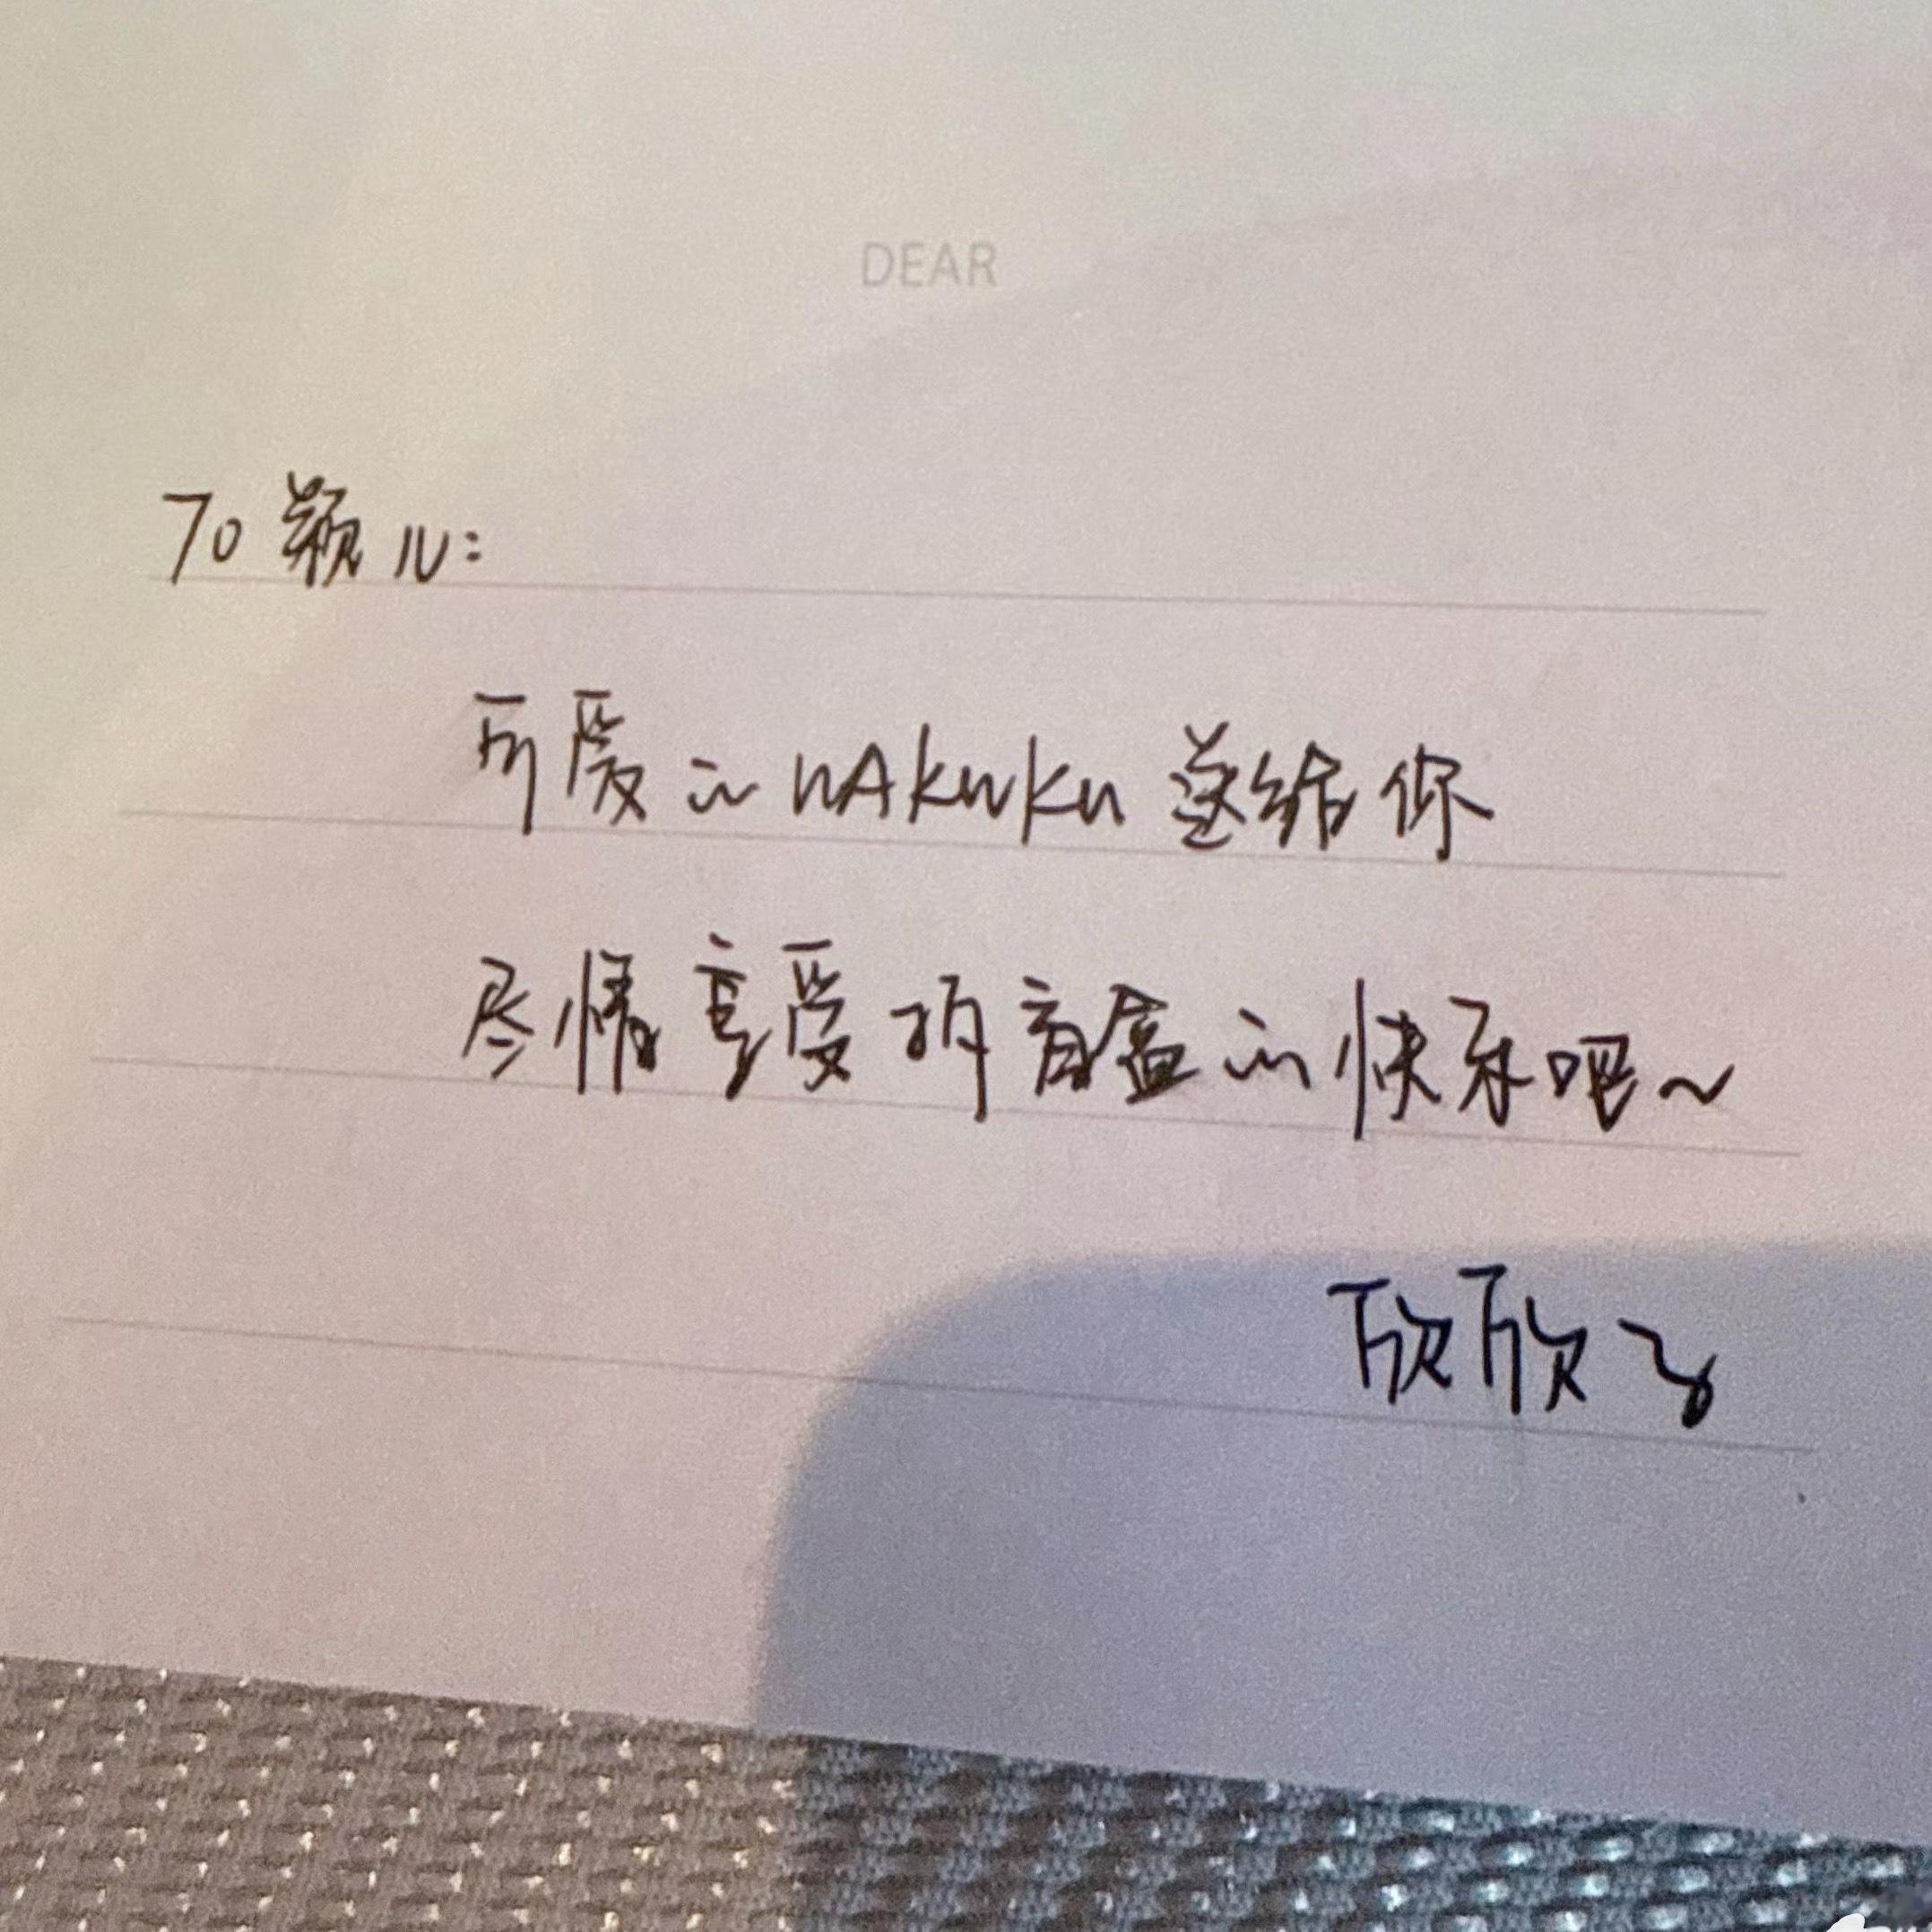 DEAR
To 颖儿:
可爱的WAKUKU送给你
尽情享受拆盲盒的快乐吧~
欣欣子